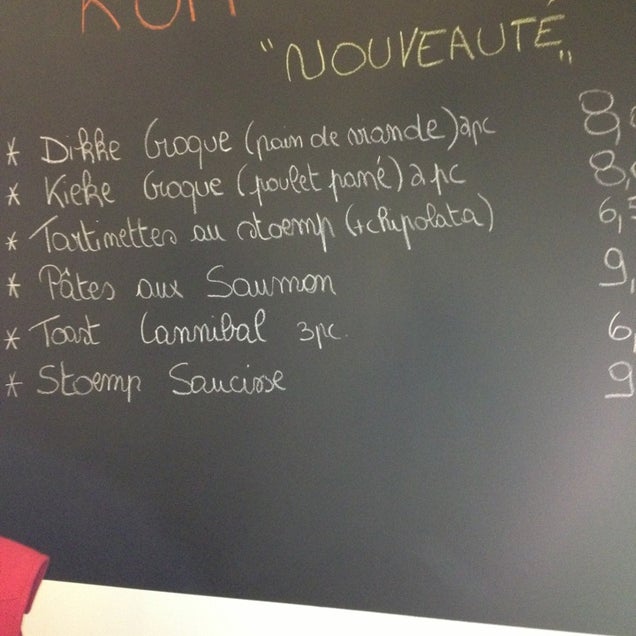 "NOUVEAUTÉ"
* Dikke Croque (pain de viande) 2pc 8,
* Kieke Croque (poulet pané) 2 pc 8,
* Tartinettes au stoemp (+chipolata) 6,
* Pâtes aux Saumon 9,
* Toast Cannibal 3pc. 6,
* Stoemp Saucisse 9